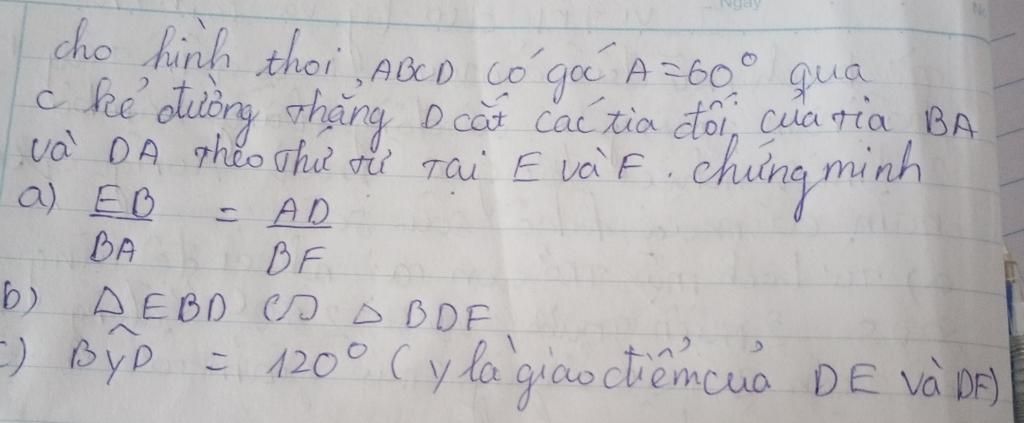 Ngày
cho hình thoi, ABCD có góc A = 60° qua
C kẻ đường thẳng D cắt các tia đối của tia BA
và DA theo thứ tự tại E và F. chứng minh
a) EB/BA = AD/BF
b) Δ EBD ∽ Δ BDF
c) ByD = 120° (y là giao điểm của DE và DF)